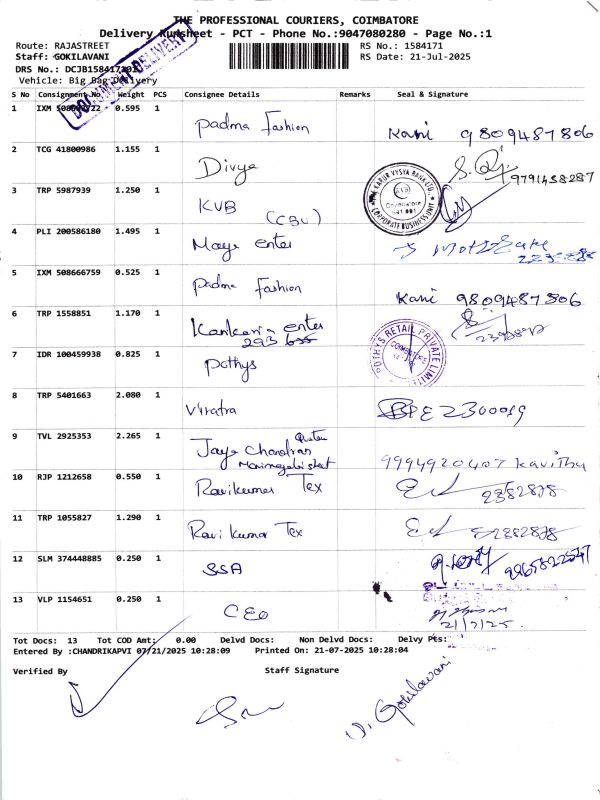 THE PROFESSIONAL COURIERS, COIMBATORE
Delivery Runsheet - PCT - Phone No.:9047080280 - Page No.:1
Route: RAJASTREET RS No.: 1584171
Staff: GOKILAVANI RS Date: 21-Jul-2025
DRS No.:
Vehicle: Big Bag Delivery
DOCUMENT DELIVERY
S No Consignment No Weight PCS Consignee Details Remarks Seal & Signature
1 IXM 0.595 1 Padma Fashion Kani 9809487806
2 TCG 41800986 1.155 1 Divya 9791438287
3 TRP 5987939 1.250 1 KVB (CBU)
THE KARUR VYSYA BANK LTD. KVB Coimbatore 641 001 CORPORATE BUSINESS UNIT
4 PLI 200586180 1.495 1 Maya enter
5 IXM 508666759 0.525 1 Padma Fashion Kani 9809487806
6 TRP 1558851 1.170 1 Kankaria enter
7 IDR 100459938 0.825 1 Pothys
POTHYS RETAIL PRIVATE LIMITED COIMBATORE
8 TRP 5401663 2.080 1 Viratra 2300019
9 TVL 2925353 2.265 1 Jaya Chandran 9994920407 Kavitha
10 RJP 1212658 0.550 1 Ravikumar Tex 2382878
11 TRP 1055827 1.290 1 Ravi kumar Tex 2382878
12 SLM 374448885 0.250 1 SSA
13 VLP 1154651 0.250 1 CEO
21/7/25
Tot Docs: 13 Tot COD Amt: 0.00 Delvd Docs: Non Delvd Docs: Delvy Pts:
Entered By :CHANDRIKAPVI 07/21/2025 10:28:09 Printed On: 21-07-2025 10:28:04
Verified By Staff Signature
Gokilavani